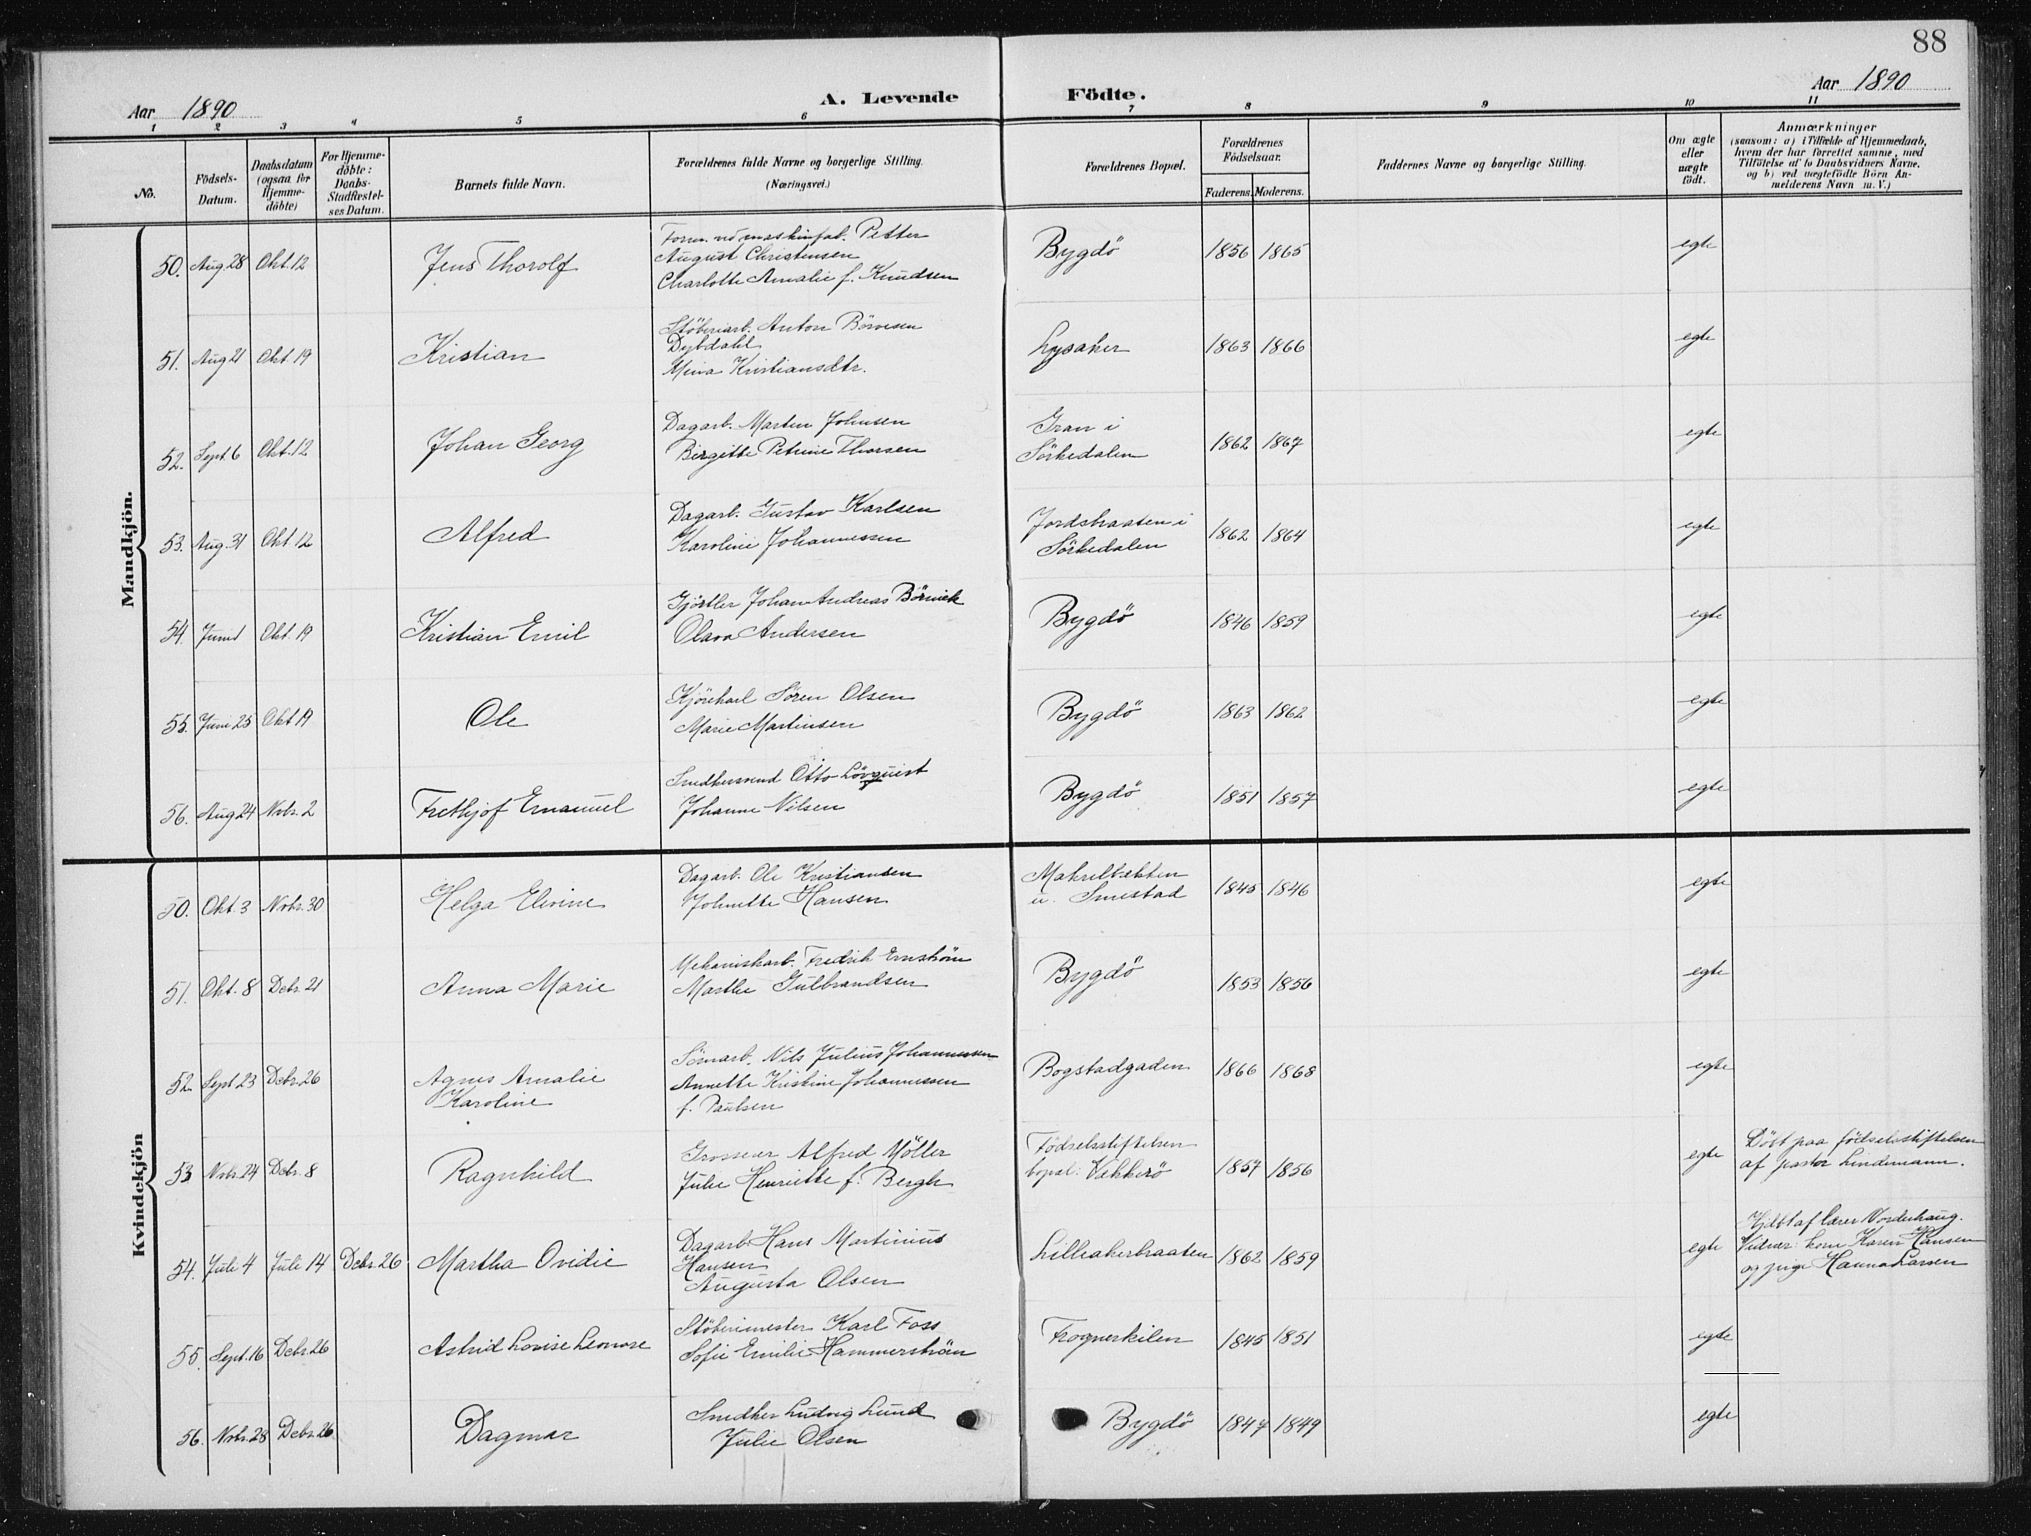 88
Aar 1890 A. Levende Födte. Aar 1890
1 2 3 4 5 6 7 8 9 10 11
No.
Födsels-
Datum.
Daabsdatum
(ogsaa for
Hjemme-
döbte)
For Hjemme-
döbte:
Daabs-
Stadfæstel-
ses Datum.
Barnets fulde Navn.
Forældrenes fulde Navne og borgerlige Stilling.
(Næringsvei.)
Forældrenes Bopæl.
Forældrenes
Födselsaar.
Faderens. Moderens.
Faddernes Navne og borgerlige Stilling.
Om ægte
eller
uægte
födt.
Anmærkninger
(saasom: a) i Tilfælde af Hjemmedaab,
hvem der har forrettet samme, med
Tilföielse af to Daabsvidners Navne,
og b) ved uægtefödte Börn An-
melderens Navn m. V.)
Mandkjön.
50. Aug 28 Okt. 12 Jens Thorolf
Form. v. maskinfab. Petter
August Christensen
Charlotte Amalie f. Knudsen
Bygdö 1856 1865 egte
51. Aug 21 Okt. 19 Kristian
Stöberiarb. Anton Börresen
Dybdahl
Mina Kristiansdtr.
Lysaker 1863 1866 egte
52. Sept. 6 Okt. 12 Johan Georg
Dagarb. Marten Johnsen
Birgitte Petrine Thorsen
Gran i
Sörkedalen 1862 1867 egte
53. Aug. 31 Okt. 12 Alfred
Dagarb. Gustav Karlsen
Karoline Johannessen
Jordsbraaten i
Sörkedalen 1862 1864 egte
54. Juni 1 Okt. 19 Kristian Emil
Gjörtler Johan Andreas
Olava Andersen
Bygdö 1846 1859 egte
55. Juni 25 Okt 19 Ole
Kjörekarl Sören Olsen
Marie Martinsen
Bygdö 1863 1862 egte
56. Aug 24 Novbr. 2 Frethjof Emanuel
Snedkersvend Otto Lövquist
Johanne Nilsen
Bygdö 1851 1857 egte
Kvindekjön
50. Okt. 3 Novbr. 30 Helga Elivine
Dagarb. Ole Kristiansen
Johnette Hansen
Makrelbækken
u. Smestad 1845 1846 egte
51. Okt. 8 Debr. 21 Anna Marie
Mekaniskarb. Fredrik Ernström
Marthe Gulbrandsen
Bygdö 1853 1856 egte
52. Sept 23 Debr. 26 Agnes Amalie
Karoline
Nils Julius Johannessen
Annette Kristine Johannessen
f. Paulsen
Bogstadgaden 1866 1868 egte
53 Nobr. 24 Debr. 8 Ragnhild
Grosserer Alfred Möller
Julie Henriette f. Bergh
Födselsstiftelsen
bopæl: Vækkerö 1857 1856 egte
Döbt paa födselsstiftelsen
af pastor Lindemann.
54. Juli 4 Juli 14 Debr. 26 Martha Ovidie
Dagarb. Hans Martinius
Hansen
Augusta Olsen
Lilleakerbraaten 1862 1859 egte
Hjdbt af lærer Norderhaug.
Vidner: kone Karen Hansen
og pige Hanna Larsen
55 Sept. 16 Debr. 26 Astrid Lovise Leonore
Stöberimester Karl Foss
Sofie Emilie Hammerström
Frognerkilen 1845 1851 egte
56. Nobr. 28 Debr. 26 Dagmar
Snedker Ludvig Lund
Julie Olsen
Bygdö 1847 1849 egte